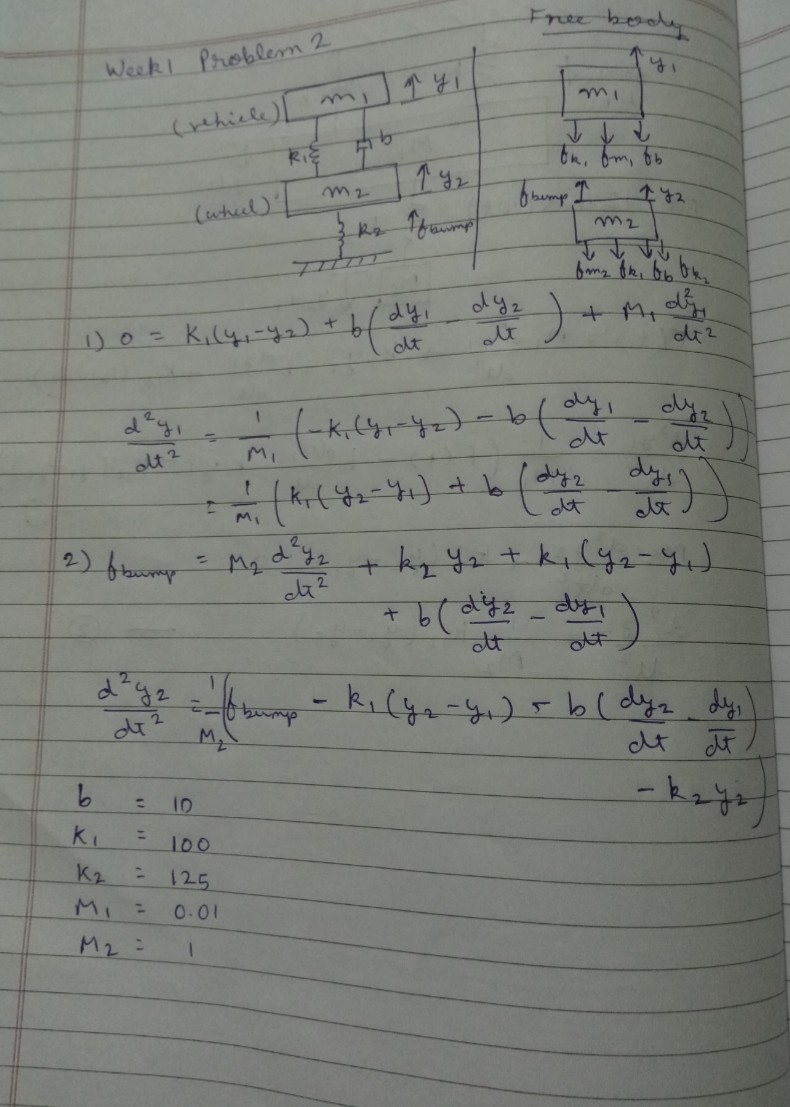 Free body
Week1 Problem 2
(vehicle) m₁ ↑ y₁
k₁ b
(wheel) m₂ ↑ y₂
k₂ ↑ fbump
↑ y₁
m₁
fk₁ fm₁ fb
fbump ↑ ↑ y₂
m₂
fm₂ fk₁ fb fk₂
1) 0 = K₁(y₁-y₂) + b(dy₁/dt - dy₂/dt) + M₁ d²y₁/dt²
d²y₁/dt² = 1/M₁ (-K₁(y₁-y₂) - b(dy₁/dt - dy₂/dt))
= 1/M₁ (K₁(y₂-y₁) + b(dy₂/dt - dy₁/dt))
2) fbump = M₂ d²y₂/dt² + k₂ y₂ + k₁(y₂-y₁)
+ b(dy₂/dt - dy₁/dt)
d²y₂/dt² = 1/M₂ (fbump - k₁(y₂-y₁) - b(dy₂/dt - dy₁/dt)
- k₂y₂)
b = 10
K₁ = 100
K₂ = 125
M₁ = 0.01
M₂ = 1